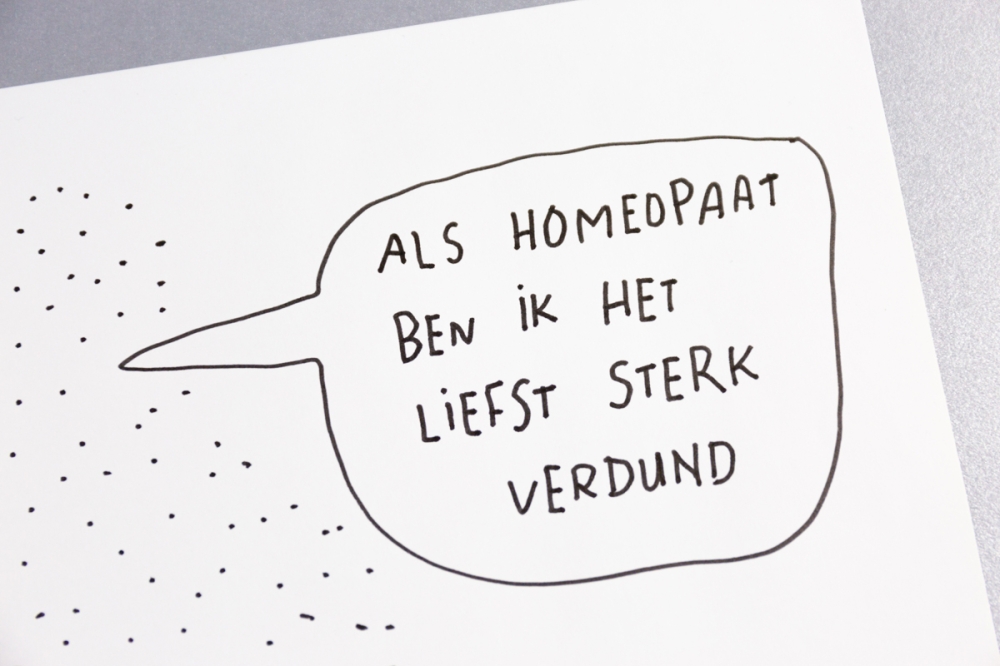 ALS HOMEOPAAT
BEN iK HET
LiEFST STERK
VERDUND